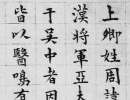 上卿姓周諱
漢將軍亞夫
于吳中者因
皆以醫鳴有